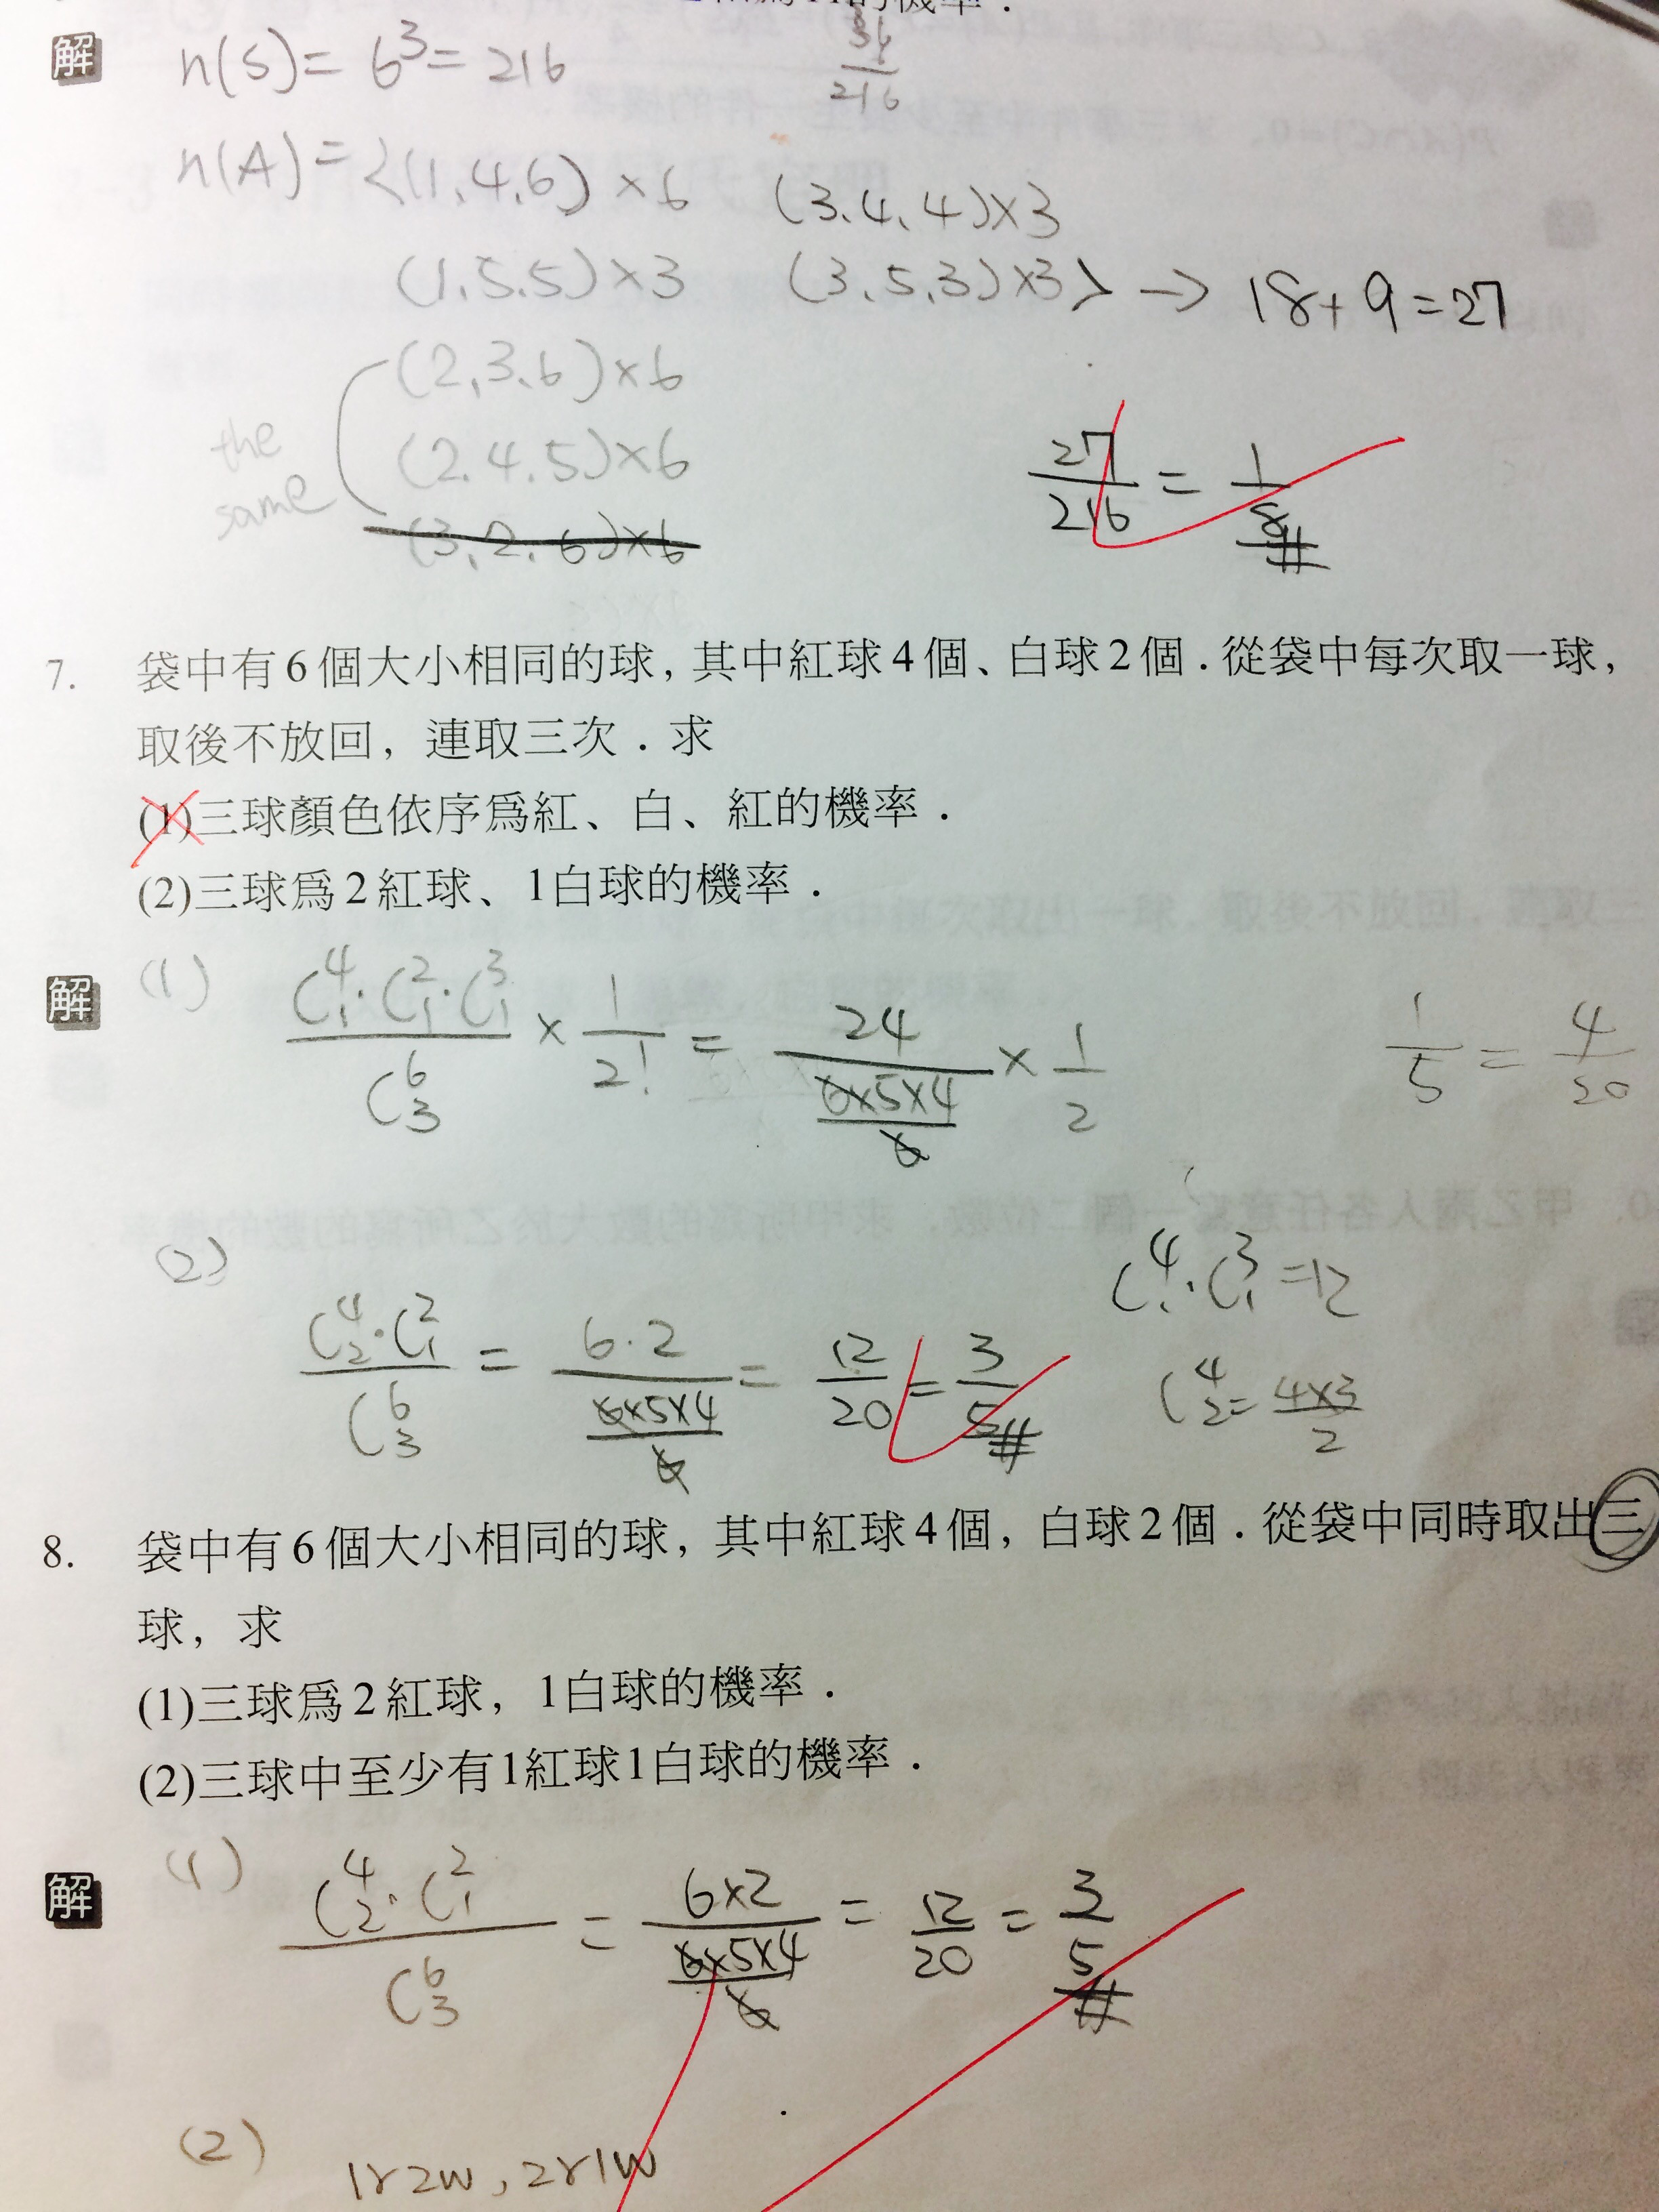 的機率．
解 n(S) = 6³ = 216 36/216
n(A) = {(1,4,6) × 6 (3,4,4)×3
(1,5,5)×3 (3,5,3)×3} → 18+9=27
(2,3,6)×6
(2,4,5)×6
the same
(3,2,6)×6
27/216 = 1/8 #
7. 袋中有6個大小相同的球，其中紅球4個、白球2個．從袋中每次取一球，
取後不放回，連取三次．求
(1)三球顏色依序爲紅、白、紅的機率．
(2)三球爲2紅球、1白球的機率．
解 (1) C⁴₁·C²₁·C³₁ / C⁶₃ × 1/2! = 24 / (6×5×4/6) × 1/2 1/5 = 4/20
(2) C⁴₁·C³₁ = 12
C⁴₂·C²₁ / C⁶₃ = 6·2 / (6×5×4/6) = 12/20 = 3/5 # C⁴₂ = 4×3/2
8. 袋中有6個大小相同的球，其中紅球4個，白球2個．從袋中同時取出三
球，求
(1)三球爲2紅球，1白球的機率．
(2)三球中至少有1紅球1白球的機率．
解 (1) C⁴₂·C²₁ / C⁶₃ = 6×2 / (6×5×4/6) = 12/20 = 3/5 #
(2) 1r2w, 2r1w